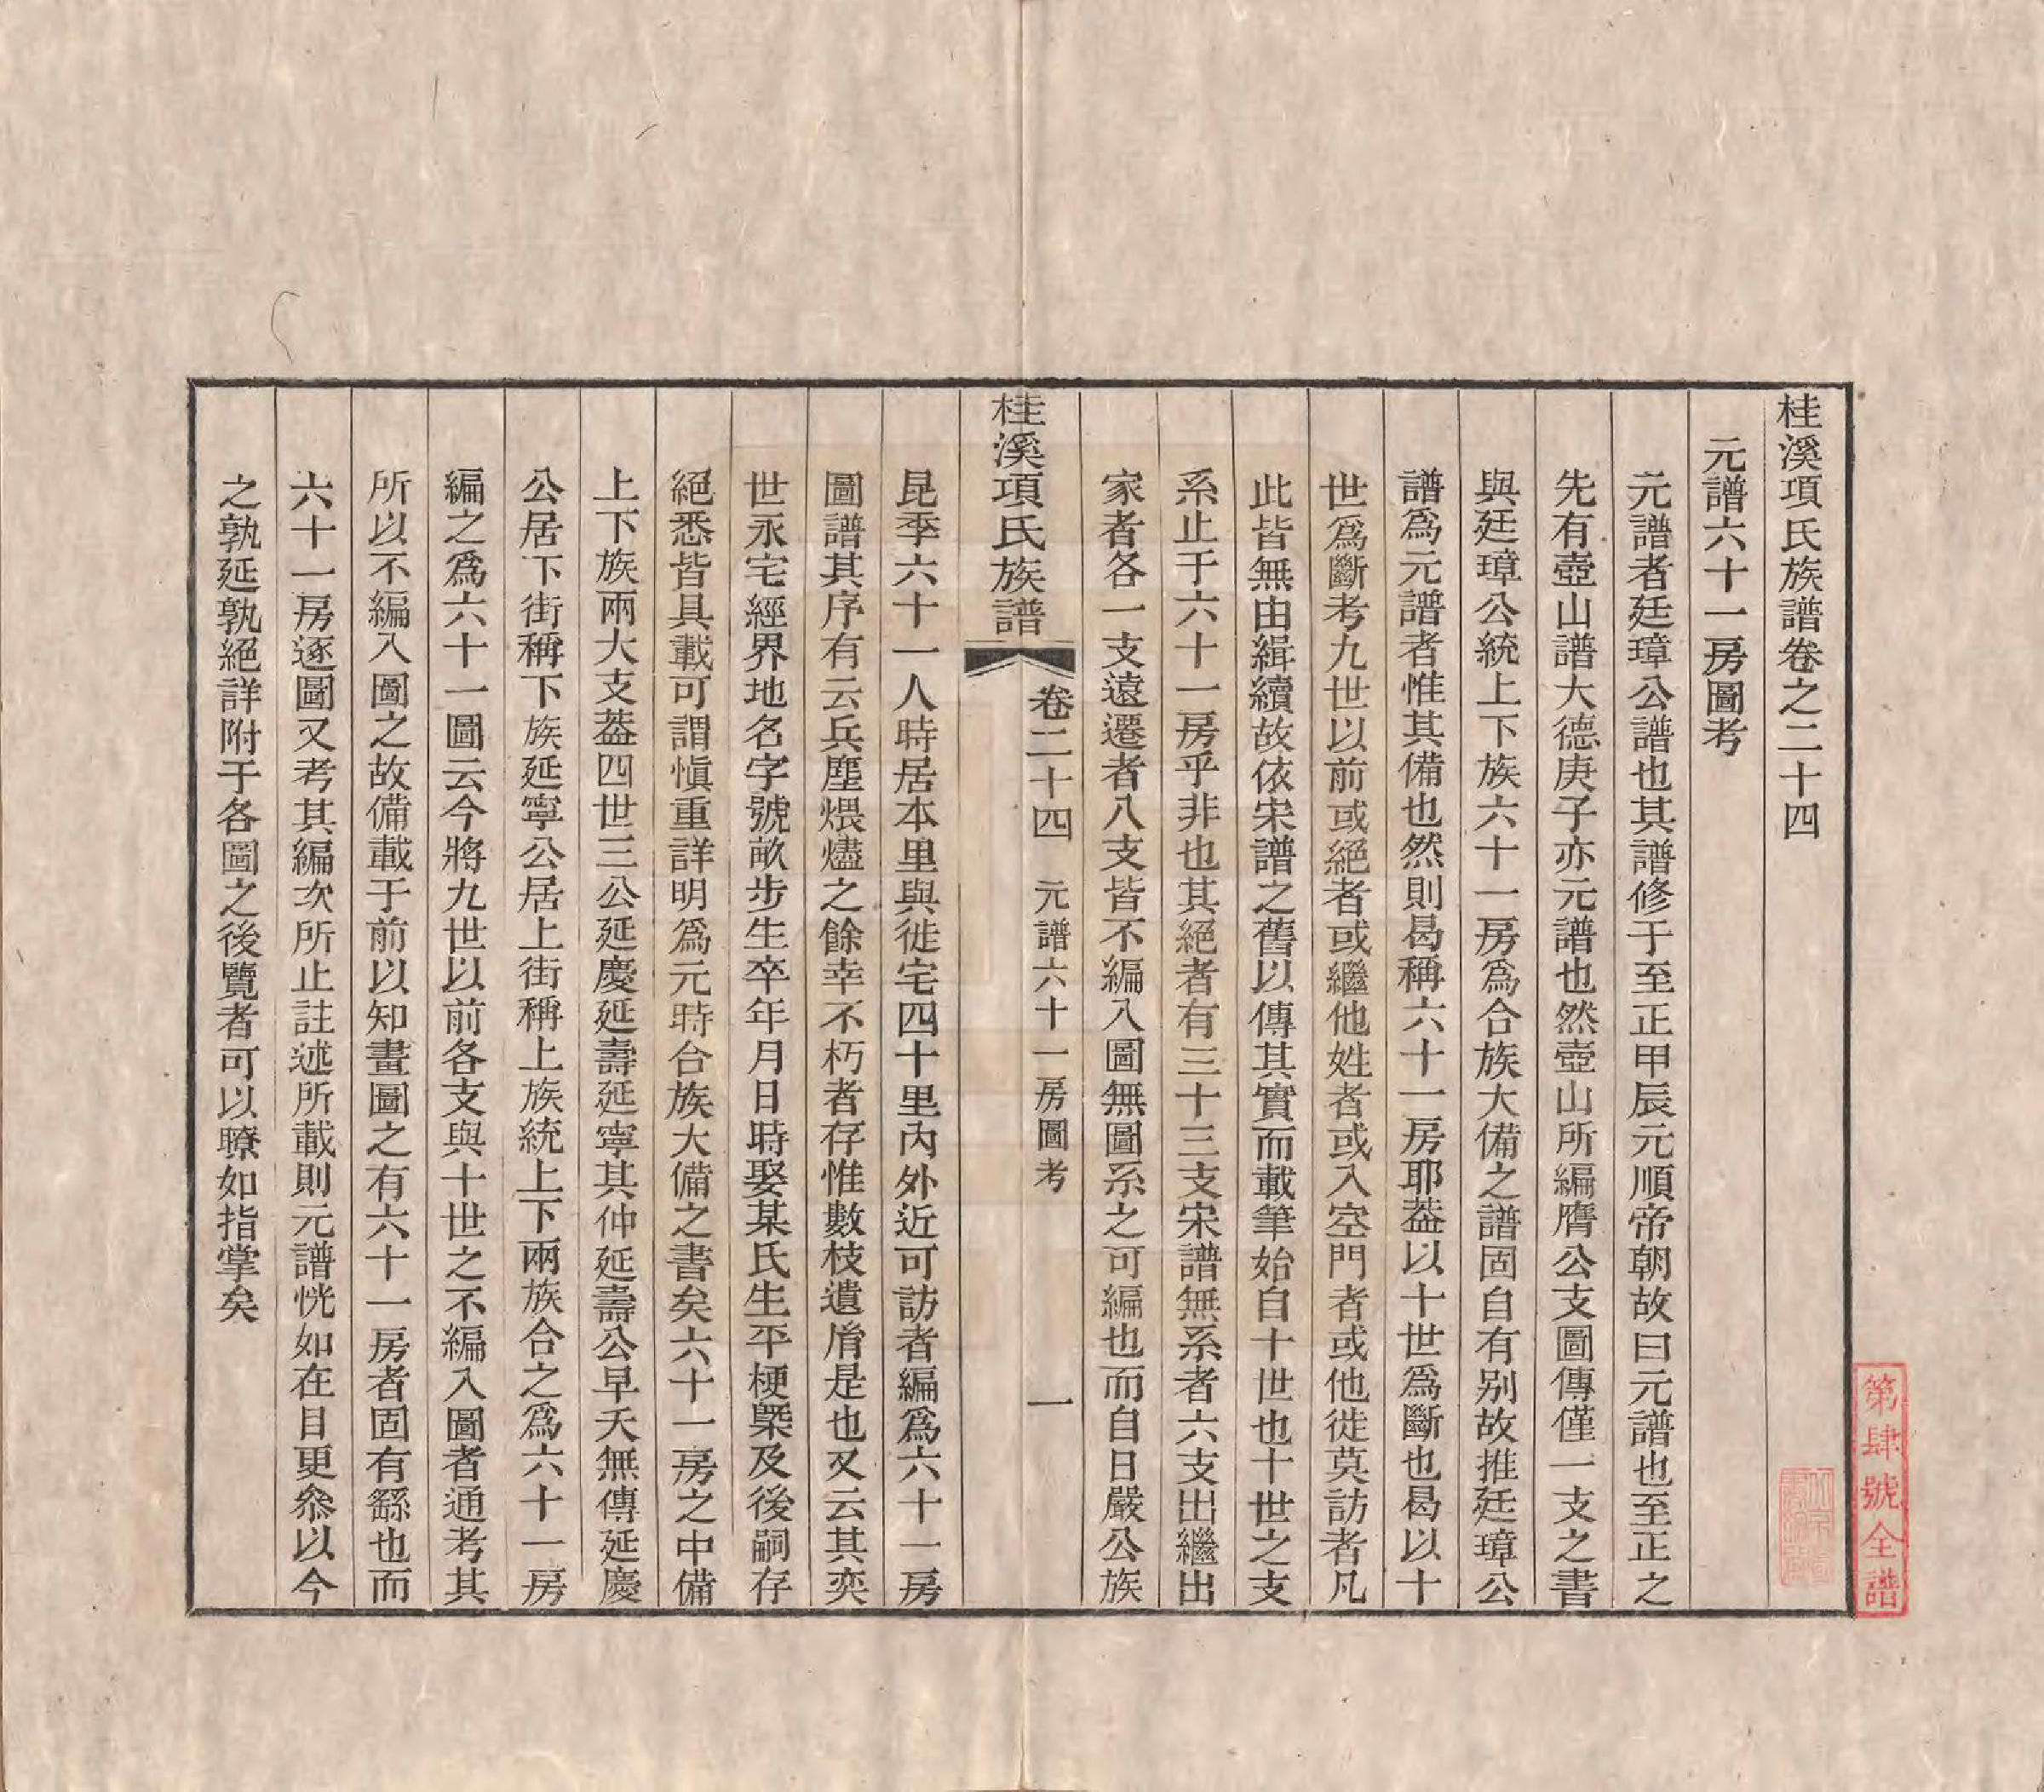 桂溪項氏族譜卷之二十四
元譜六十一房圖考
元譜者廷璋公譜也其譜修于至正甲辰元順帝朝故曰元譜也至正之
先有壺山譜大德庚子亦元譜也然壺山所編膺公支圖傳僅一支之書
與廷璋公統上下族六十一房爲合族大備之譜固自有別故推廷璋公
譜爲元譜者惟其備也然則曷稱六十一房耶葢以十世爲斷也曷以十
世爲斷考九世以前或絕者或繼他姓者或入空門者或他徙莫訪者凡
此皆無由緝續故依宋譜之舊以傳其實而載筆始自十世也十世之支
系止于六十一房乎非也其絕者有三十三支宋譜無系者六支出繼出
家者各一支遠遷者八支皆不編入圖無圖系之可編也而自日嚴公族
桂溪項氏族譜 卷二十四 元譜六十一房圖考 一
昆季六十一人時居本里與徙宅四十里內外近可訪者編爲六十一房
圖譜其序有云兵塵煨燼之餘幸不朽者存惟數枝遺胤是也又云其奕
世永宅經界地名字號畝步生卒年月日時娶某氏生平梗槩及後嗣存
絕悉皆具載可謂慎重詳明爲元時合族大備之書矣六十一房之中備
上下族兩大支葢四世三公延慶延壽延寧其仲延壽公早夭無傳延慶
公居下街稱下族延寧公居上街稱上族統上下兩族合之爲六十一房
編之爲六十一圖云今將九世以前各支與十世之不編入圖者通考其
所以不編入圖之故備載于前以知畫圖之有六十一房者固有繇也而
六十一房逐圖又考其編次所止註述所載則元譜恍如在目更叅以今
之孰延孰絕詳附于各圖之後覽者可以瞭如指掌矣
第肆號全譜